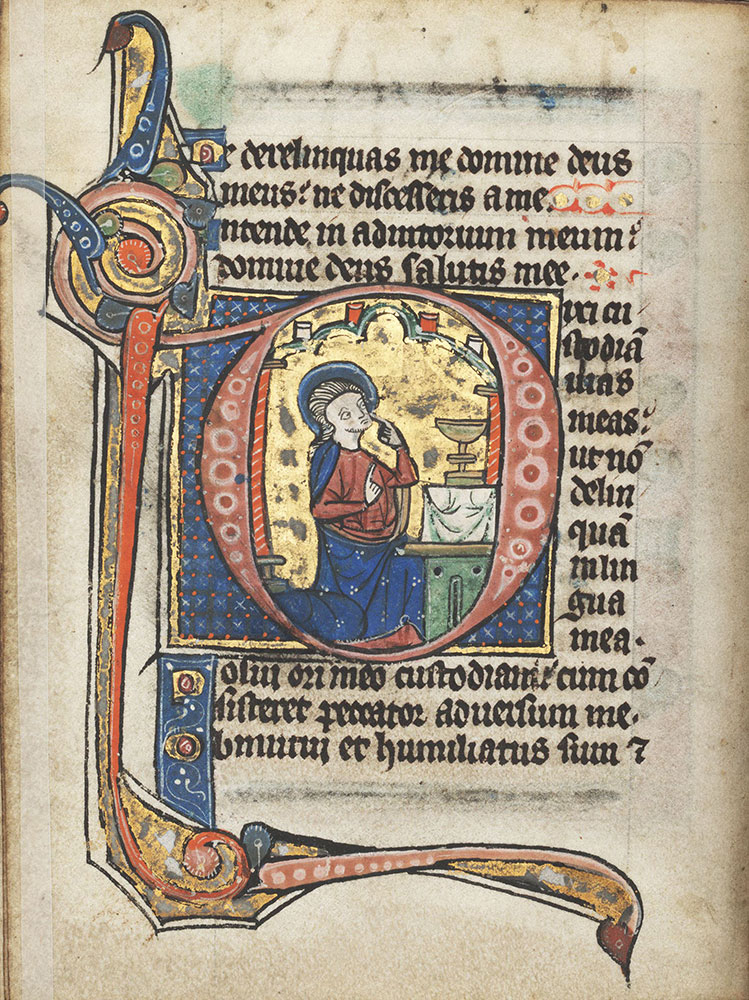 Ne derelinquas me domine deus
meus: ne discesseris a me.
Intende in adiutorium meum:
domine deus salutis mee.
Dixi cu
stodiā
uias
meas:
ut nō
delin
quā
in lin
gua
mea.
Posui ori meo custodiam: cum cō
sisteret peccator aduersum me.
Obmutui et humiliatus sum ⁊